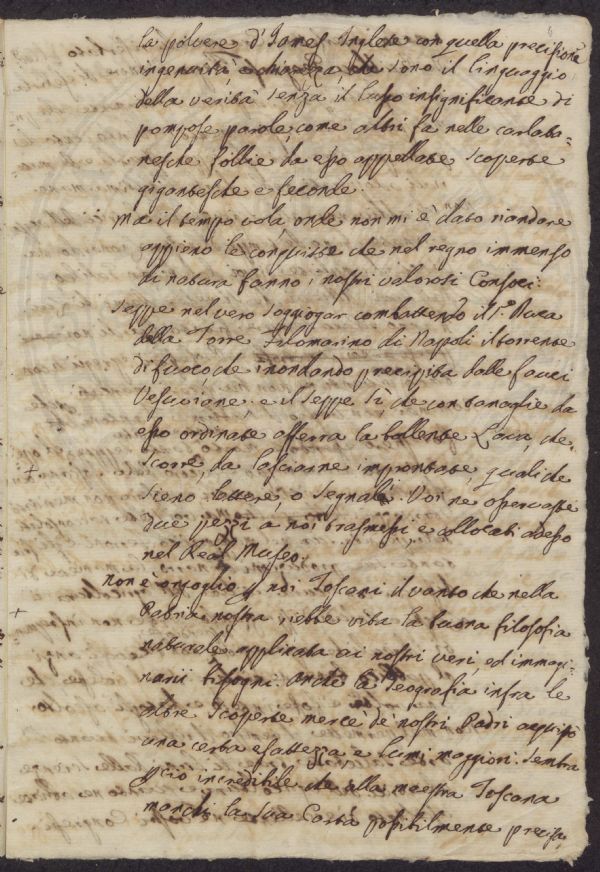 la polvere d'James Inglese con quella precisione
ingenuità e chiarezza, che sono il linguaggio
della verità senza il lusso insignificante di
pompose parole, come altri fa nelle carlata-
nesche follie da esso appellate scoperte
gigantesche e feconde.
Ma il tempo vola, onde non mi è dato riandare
appieno le conquiste che nel regno immenso
di natura fanno i nostri valorosi Consoci:
seppe nel vero soggiogar combattendo il Duca
della Torre Filomarino di Napoli il torrente
di fuoco che inondando precipita dalle fauci
Vesuviane, e il seppe sì, che con tanaglie da
esso ordinate afferra la bollente Lava, che
scorre, da lasciarne improntate, quali che
sieno, lettere, o segnali. Voi ne osservaste
due pezzi a noi trasmessi, e allocati adesso
nel Real Museo.
non è orgoglio p noi Toscani il vanto che nella
Patria nostra riebbe vita la buona filosofia
naturale applicata ai nostri veri, ed immagi-
narii bisogni. Anche la Geografia infra le
altre scoperte mercè de nostri Padri acquistò
una certa esattezza, e lumi maggiori. Sembra
pciò incredibile che alla maestra Toscana
manchi la sua Carta possibilmente precisa,